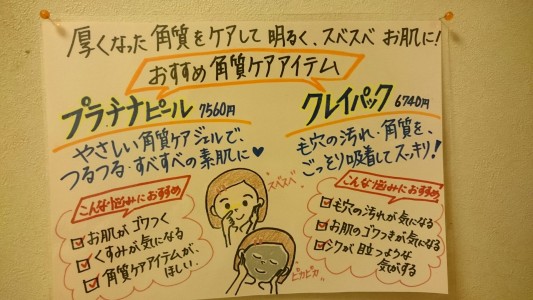 厚くなった角質をケアして明るく、スベスベお肌に!
おすすめ角質ケアアイテム
プラチナピール 7560円
やさしい角質ケアジェルで、
つるつる・すべすべの素肌に♥
こんな悩みにおすすめ
お肌がゴワつく
くすみが気になる
角質ケアアイテムが、
ほしい…
スベスベ
ピカピカ
クレイパック 6740円
毛穴の汚れ・角質を、
ごっそり吸着してスッキリ!
こんな悩みにおすすめ
毛穴の汚れが気になる
お肌のゴワつきが気になる
シワが目立つような
気がする